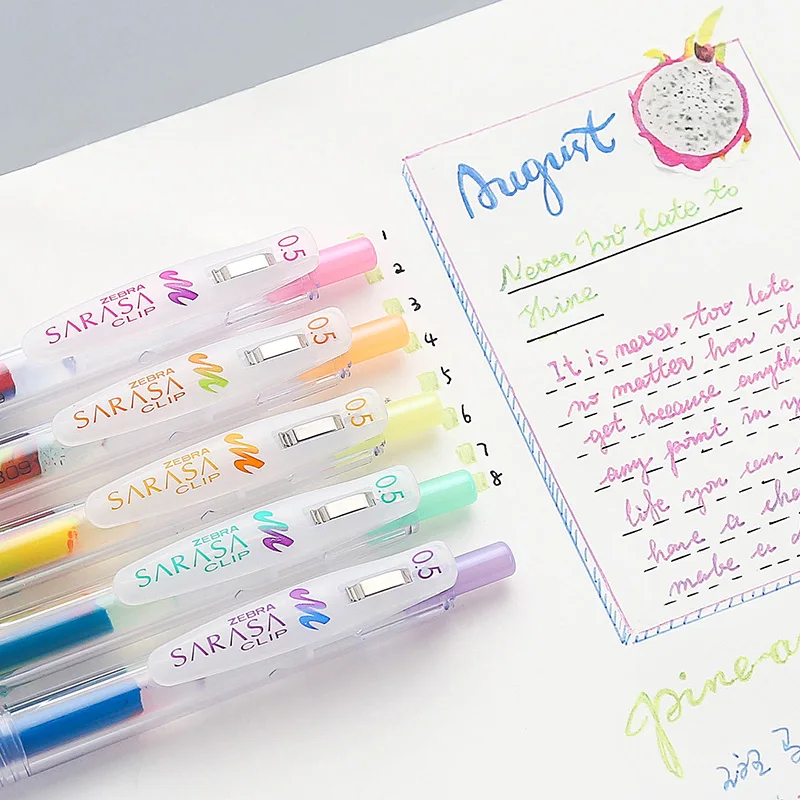 August
Never too Late to
Shine
It is never too late
no matter how
get because anything
any point in
life you can
have a
make a
pine-a
1
2
3
4
5
6
7
8
0.5
ZEBRA
SARASA
CLIP
0.5
ZEBRA
SARASA
CLIP
0.5
ZEBRA
SARASA
CLIP
0.5
ZEBRA
SARASA
CLIP
0.5
ZEBRA
SARASA
CLIP